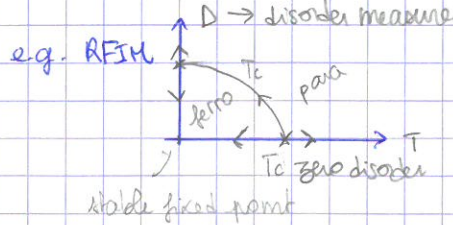 D → disorder measure
e.g. RFIM
Tc
para
ferro
T
Tc zero disorder
stable fixed point